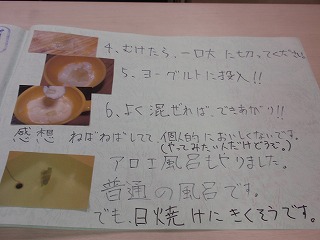 4、むけたら、一口大に切ってください
5、ヨーグルトに投入!!
6、よく混ぜれば、できあがり!!
感想 ねばねばしてて、個人的においしくないです。
(やってみたい人だけどうぞ。)
アロエ風呂もやりました。
普通の風呂です。
でも、日焼けにきくそうです。